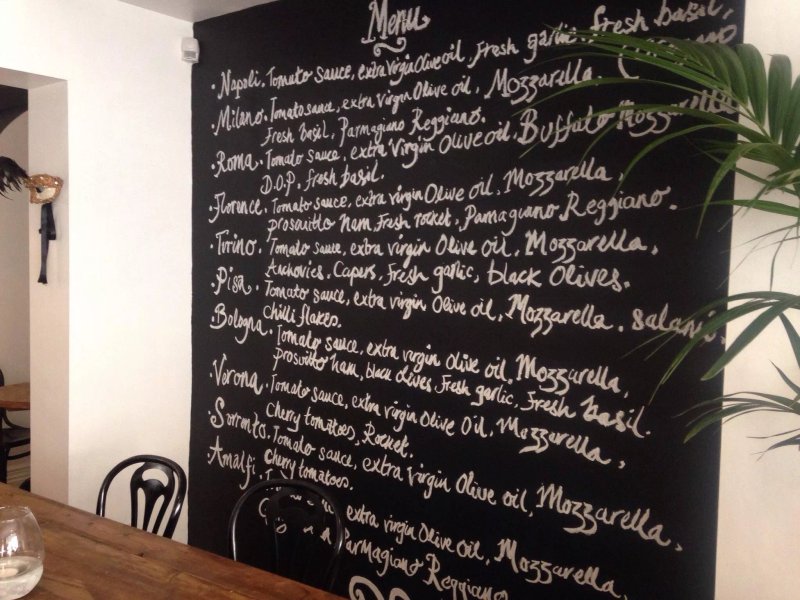 Menu
• Napoli. Tomato sauce, extra Virgin Olive oil, fresh garlic, fresh basil,
• Milano. Tomato sauce, extra virgin Olive oil, Mozzarella,
Fresh Basil, Parmagiano Reggiano.
• Roma. Tomato sauce, extra virgin Olive oil, Buffalo Mozzarella
D.O.P, fresh basil.
Florence. Tomato sauce, extra virgin Olive oil, Mozzarella,
prosuitto ham, Fresh rocket, Parmagiano Reggiano.
• Turino. Tomato sauce, extra virgin Olive oil, Mozzarella,
Auchovies, Capers, fresh garlic, black olives.
• Pisa. Tomato sauce, extra virgin Olive oil, Mozzarella. salami,
Chilli flakes.
Bologna. Tomato sauce, extra virgin Olive oil, Mozzarella,
prosuitto ham, black olives, fresh garlic, fresh basil.
• Verona. Tomato sauce, extra virgin Olive Oil, Mozzarella,
Cherry tomatoes, Rocket.
• Sorrento. Tomato sauce, extra virgin Olive oil, Mozzarella,
Cherry tomatoes.
• Amalfi. extra virgin Olive oil, Mozzarella,
Parmagiano Reggiano